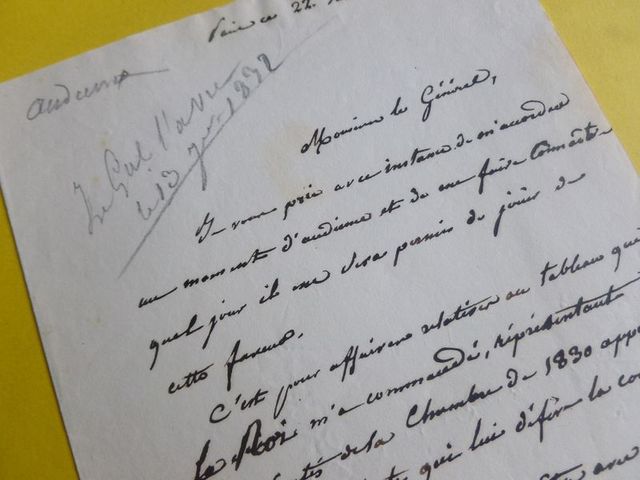 Paris ce 22.
audience
Le Gal l'a vu
le 13 Jer 1832
Monsieur le Général,
Je vous prie avec instance de m'accorder
un moment d'audience et de me faire connaître
quel jour il me sera permis de jouir de
cette faveur.
C'est pour affaires relatives au tableau que
le Roi m'a commandé, représentant
tés de la Chambre de 1830 appo
qui lui défère la cou
avec